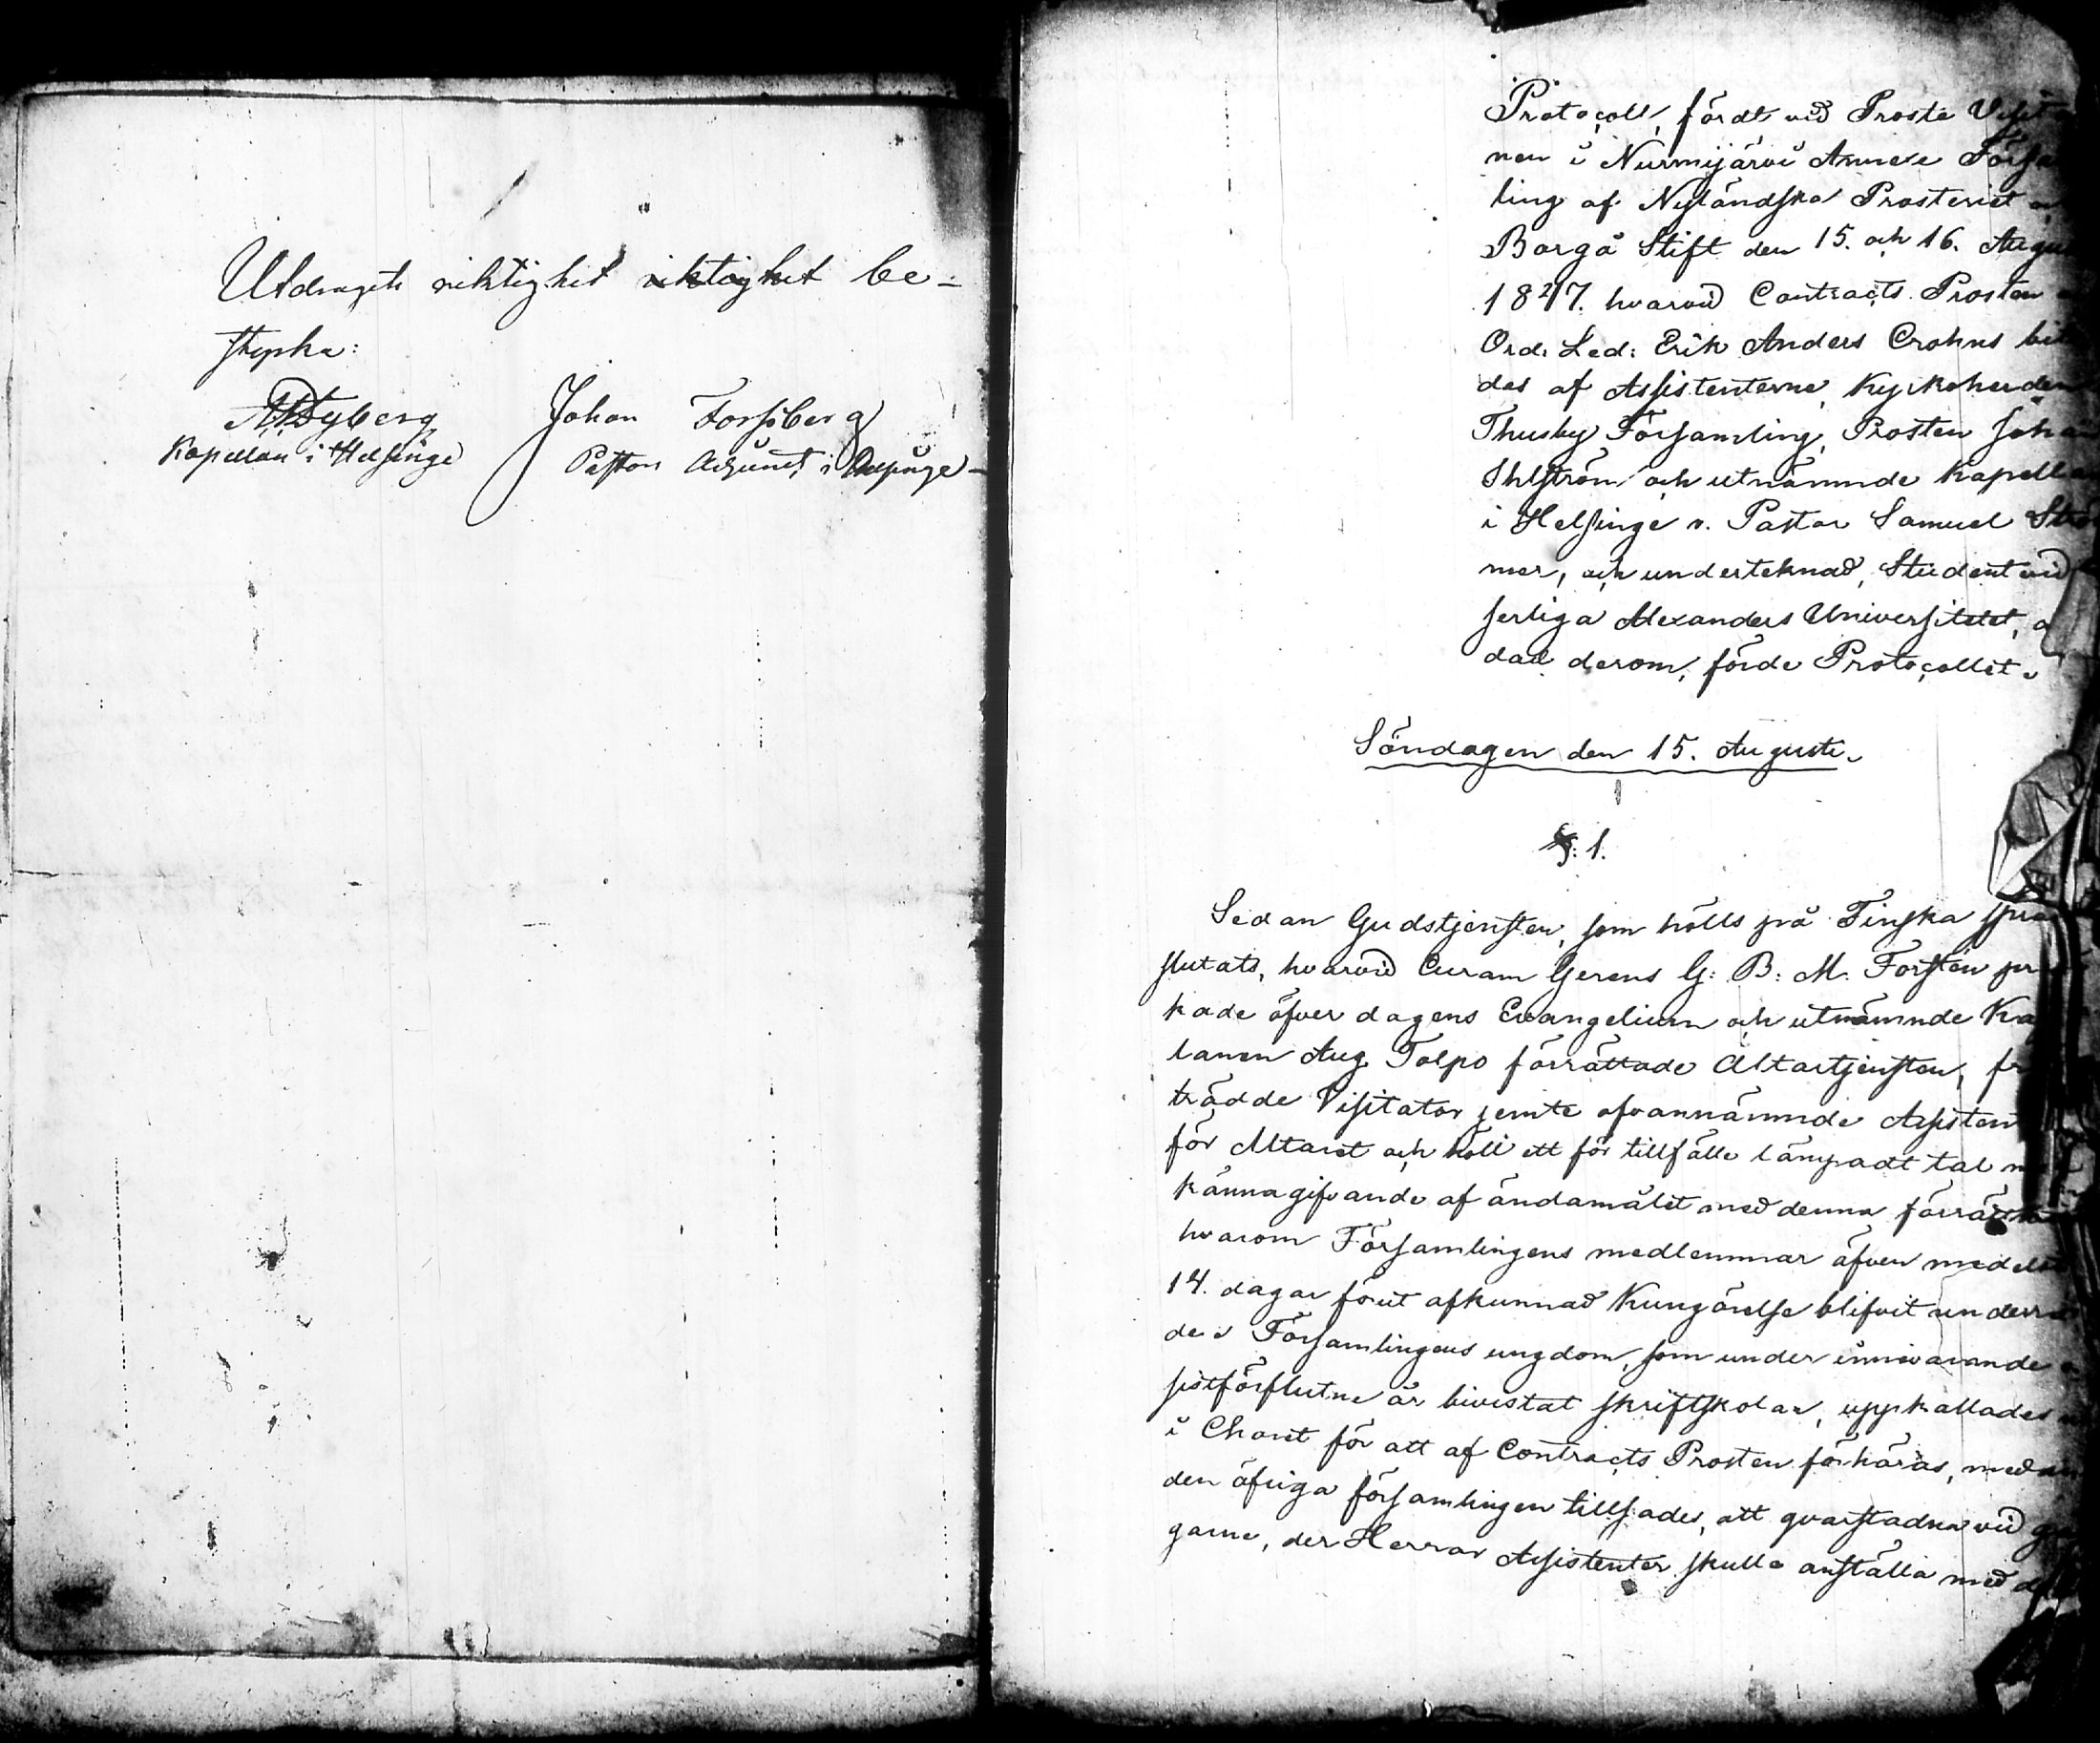 Utdragets riktighet riktighet be-
styrka:
Dyberg
Kapellan i Helsinge
Johan Forssberg
Pastors Adjunct i Helsinge
Protocoll, fördt vid Proste Visita
nen i Nurmijärvi Annexe Försa
ling af Nyländska Prosteriet
Borgå Stift den 15. och 16. Augu
1847. hvarvid Contracts Prosten
Ord: Led: Erik Anders Crohns bi
des af Assistenterne, Kyrkoherden
Thusby Församling, Prosten Joha
Ihlström och utnämnde Kapella
i Helsinge v. Pastor Samuel Strö
mer, och undertecknad, Student vid
serliga Alexanders Universitetet, a
dad derom, förde Protocollet.
Söndagen den 15. Augusti.
§: 1.
Sedan Gudstjensten, som hölls på Finska språ
slutats, hvarvid Curam Gerens G: B: M. Forstén pr
kade öfver dagens Evangelium och utnämnde Ka
lanen Aug. Tolpo förrättade Altartjensten, fr
trädde Visitator jemte ofvannämnde Assisten
för Altaret och höll ett för tillfälle lämpadt tal m
kännagifvande af ändamålet med denna förrätt
hvarom Församlingens medlemmar äfven medelst
14. dagar förut afkunnad Kungörelse blifvit underrä
de. Församlingens ungdom, som under innevarande
sistförflutne år bivistat skriftskolan, uppkallades
i Choret för att af Contracts Prosten förhöras, medan
den öfriga församlingen tillsades, att qvarstadna vid gå
garne, der Herrar Assistenter skulle anställa med d